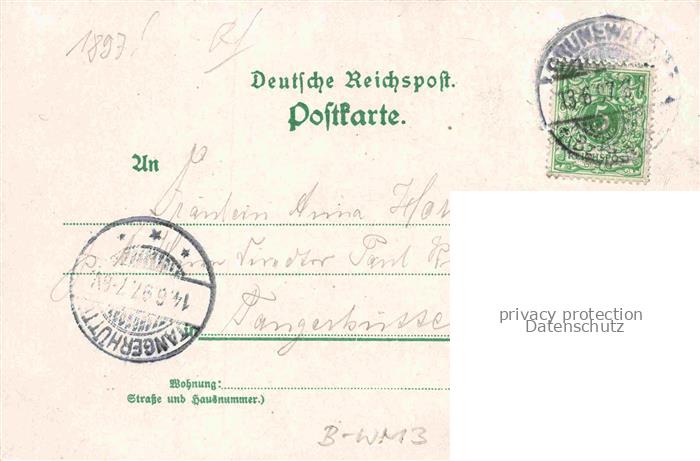 1897!
GRUNEWALD
13.6.97
5
REICHSPOST
Deutsche Reichspost.
Postkarte.
An
Fräulein Anna
Herrn Director Paul
Tangerhütte
TANGERHÜTTE
14.6.97.7-8V.
privacy protection
Datenschutz
Wohnung:
Straße und Hausnummer.)
B-WM13